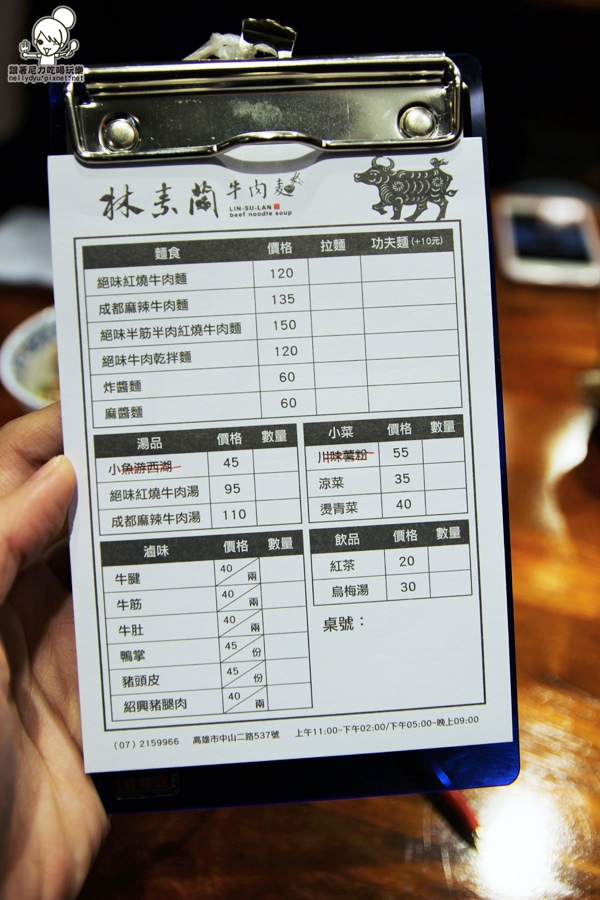 跟著尼力吃喝玩樂
nellydyu.pixnet.net
林素蘭 牛肉麵
LIN-SU-LAN
beef noodle soup
麵食 價格 拉麵 功夫麵(+10元)
絕味紅燒牛肉麵 120
成都麻辣牛肉麵 135
絕味半筋半肉紅燒牛肉麵 150
絕味牛肉乾拌麵 120
炸醬麵 60
麻醬麵 60
湯品 價格 數量
小魚游西湖 45
絕味紅燒牛肉湯 95
成都麻辣牛肉湯 110
小菜 價格 數量
川味薯粉 55
涼菜 35
燙青菜 40
滷味 價格 數量
牛腱 40/兩
牛筋 40/兩
牛肚 40/兩
鴨掌 45/份
豬頭皮 45/份
紹興豬腿肉 40/兩
飲品 價格 數量
紅茶 20
烏梅湯 30
桌號：
(07) 2159966 高雄市中山二路537號 上午11:00~下午02:00/下午05:00~晚上09:00